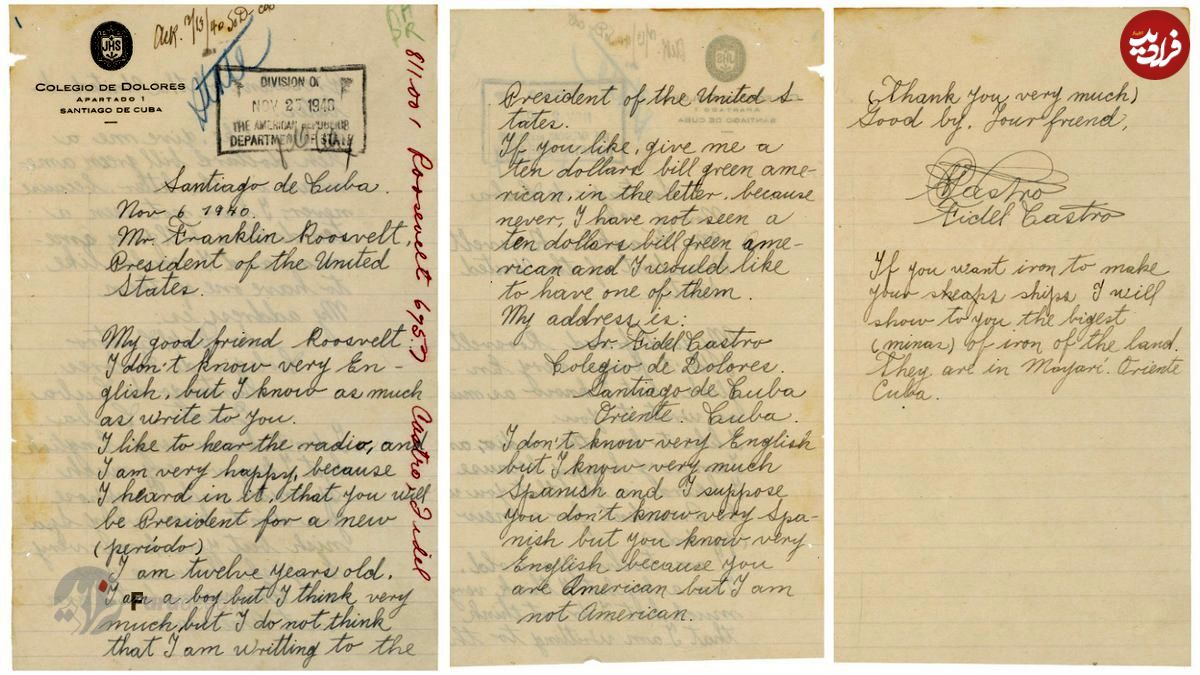 JHS
COLEGIO DE DOLORES
APARTADO 1
SANTIAGO DE CUBA
State
DIVISION OF
NOV 27 1940
THE AMERICAN REPUBLICS
DEPARTMENT OF STATE
Santiago de Cuba.
Nov 6 1940.
Mr. Franklin Roosvelt,
President of the United
States.
My good friend Roosvelt
I don't know very En-
glish, but I know as much
as write to you.
I like to hear the radio, and
I am very happy, because
I heard in it, that you will
be President for a new
(período)
I am twelve years old.
I am a boy but I think very
much but I do not think
that I am writting to the
811.001 Roosevelt Castro, Fidel
President of the United S-
tates.
If you like, give me a
ten dollars bill green ame-
rican, in the letter, because
never, I have not seen a
ten dollars bill green ame-
rican and I would like
to have one of them.
My address is:
Sr. Fidel Castro
Colegio de Dolores.
Santiago de Cuba
Oriente. Cuba.
I don't know very English
but I know very much
Spanish and I suppose
you don't know very Spa-
nish but you know very
English because you
are American but I am
not American.
فرادید
(Thank you very much)
Good by. Your friend,
Castro
Fidel Castro
If you want iron to make
your sheaps ships I will
show to you the bigest
(minas) of iron of the land.
They are in Mayarí. Oriente
Cuba.